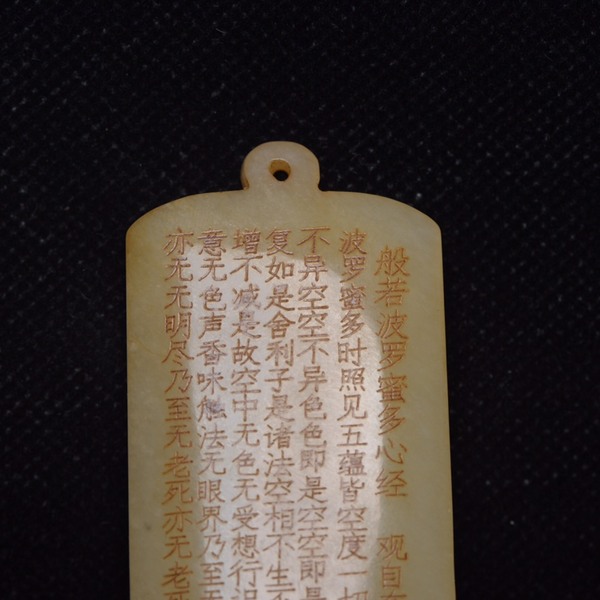 般若波罗蜜多心经 观自
波罗蜜多时照见五蕴皆空度一切
不异空空不异色色即是空空即是
复如是舍利子是诸法空相不生不
增不减是故空中无色无受想行识
意无色声香味触法无眼界乃至无
亦无无明尽乃至无老死亦无老死